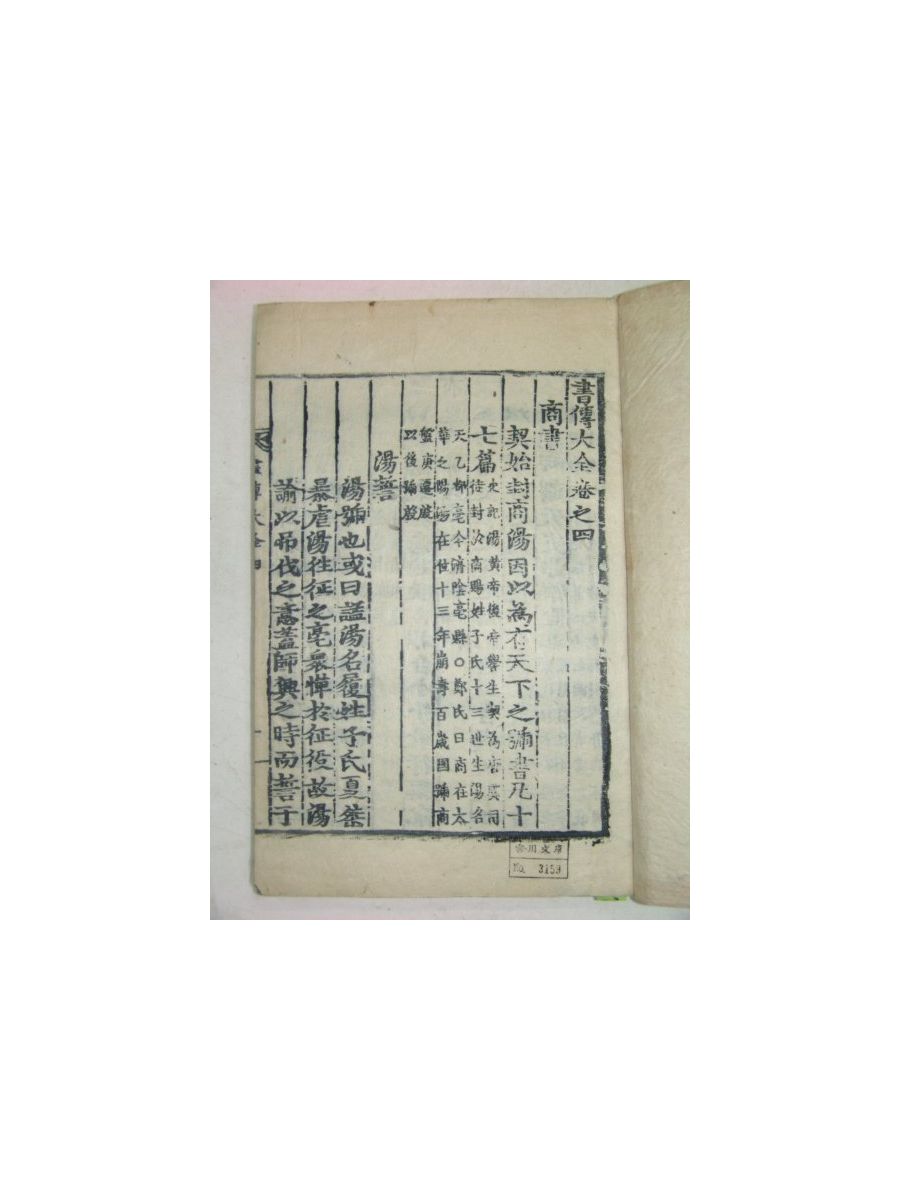 書傳大全卷之四
商書
契始封商湯因以為有天下之號書凡十
七篇
史記湯黄帝後帝嚳生契為唐虞司
徒封於商賜姓子氏十三世生湯名
天乙都亳今濟陰亳縣○鄭氏曰商在太
華之陽湯在位十三年崩壽百歲國號商
盤庚遷殷
以後號殷
湯誓
湯號也或曰謚湯名履姓子氏夏桀
暴虐湯徃征之亳衆憚於征役故湯
諭以吊伐之意盖師興之時而誓于
書傳大全四
一
川文庫
No. 3159